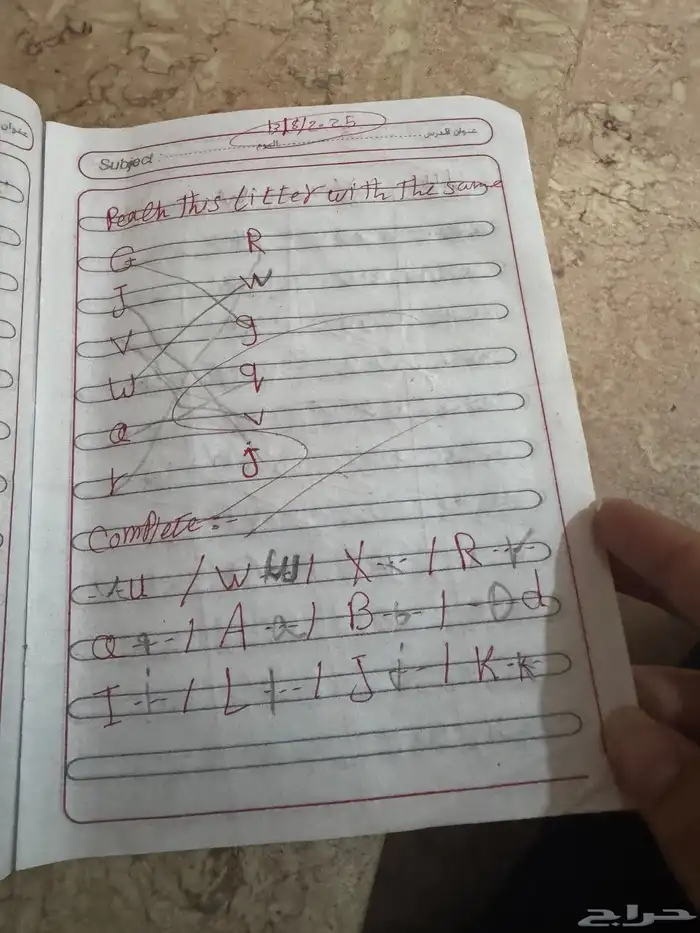 عنوان
12/8/2025
Subject : اليوم عنوان الدرس
Reach this litter with the same
G R
J w
V g
W q
Q v
r j
Complete :-
u / W w / X x / R r
Q q / A a / B b / D d
I i / L l / J j / K k
حراج